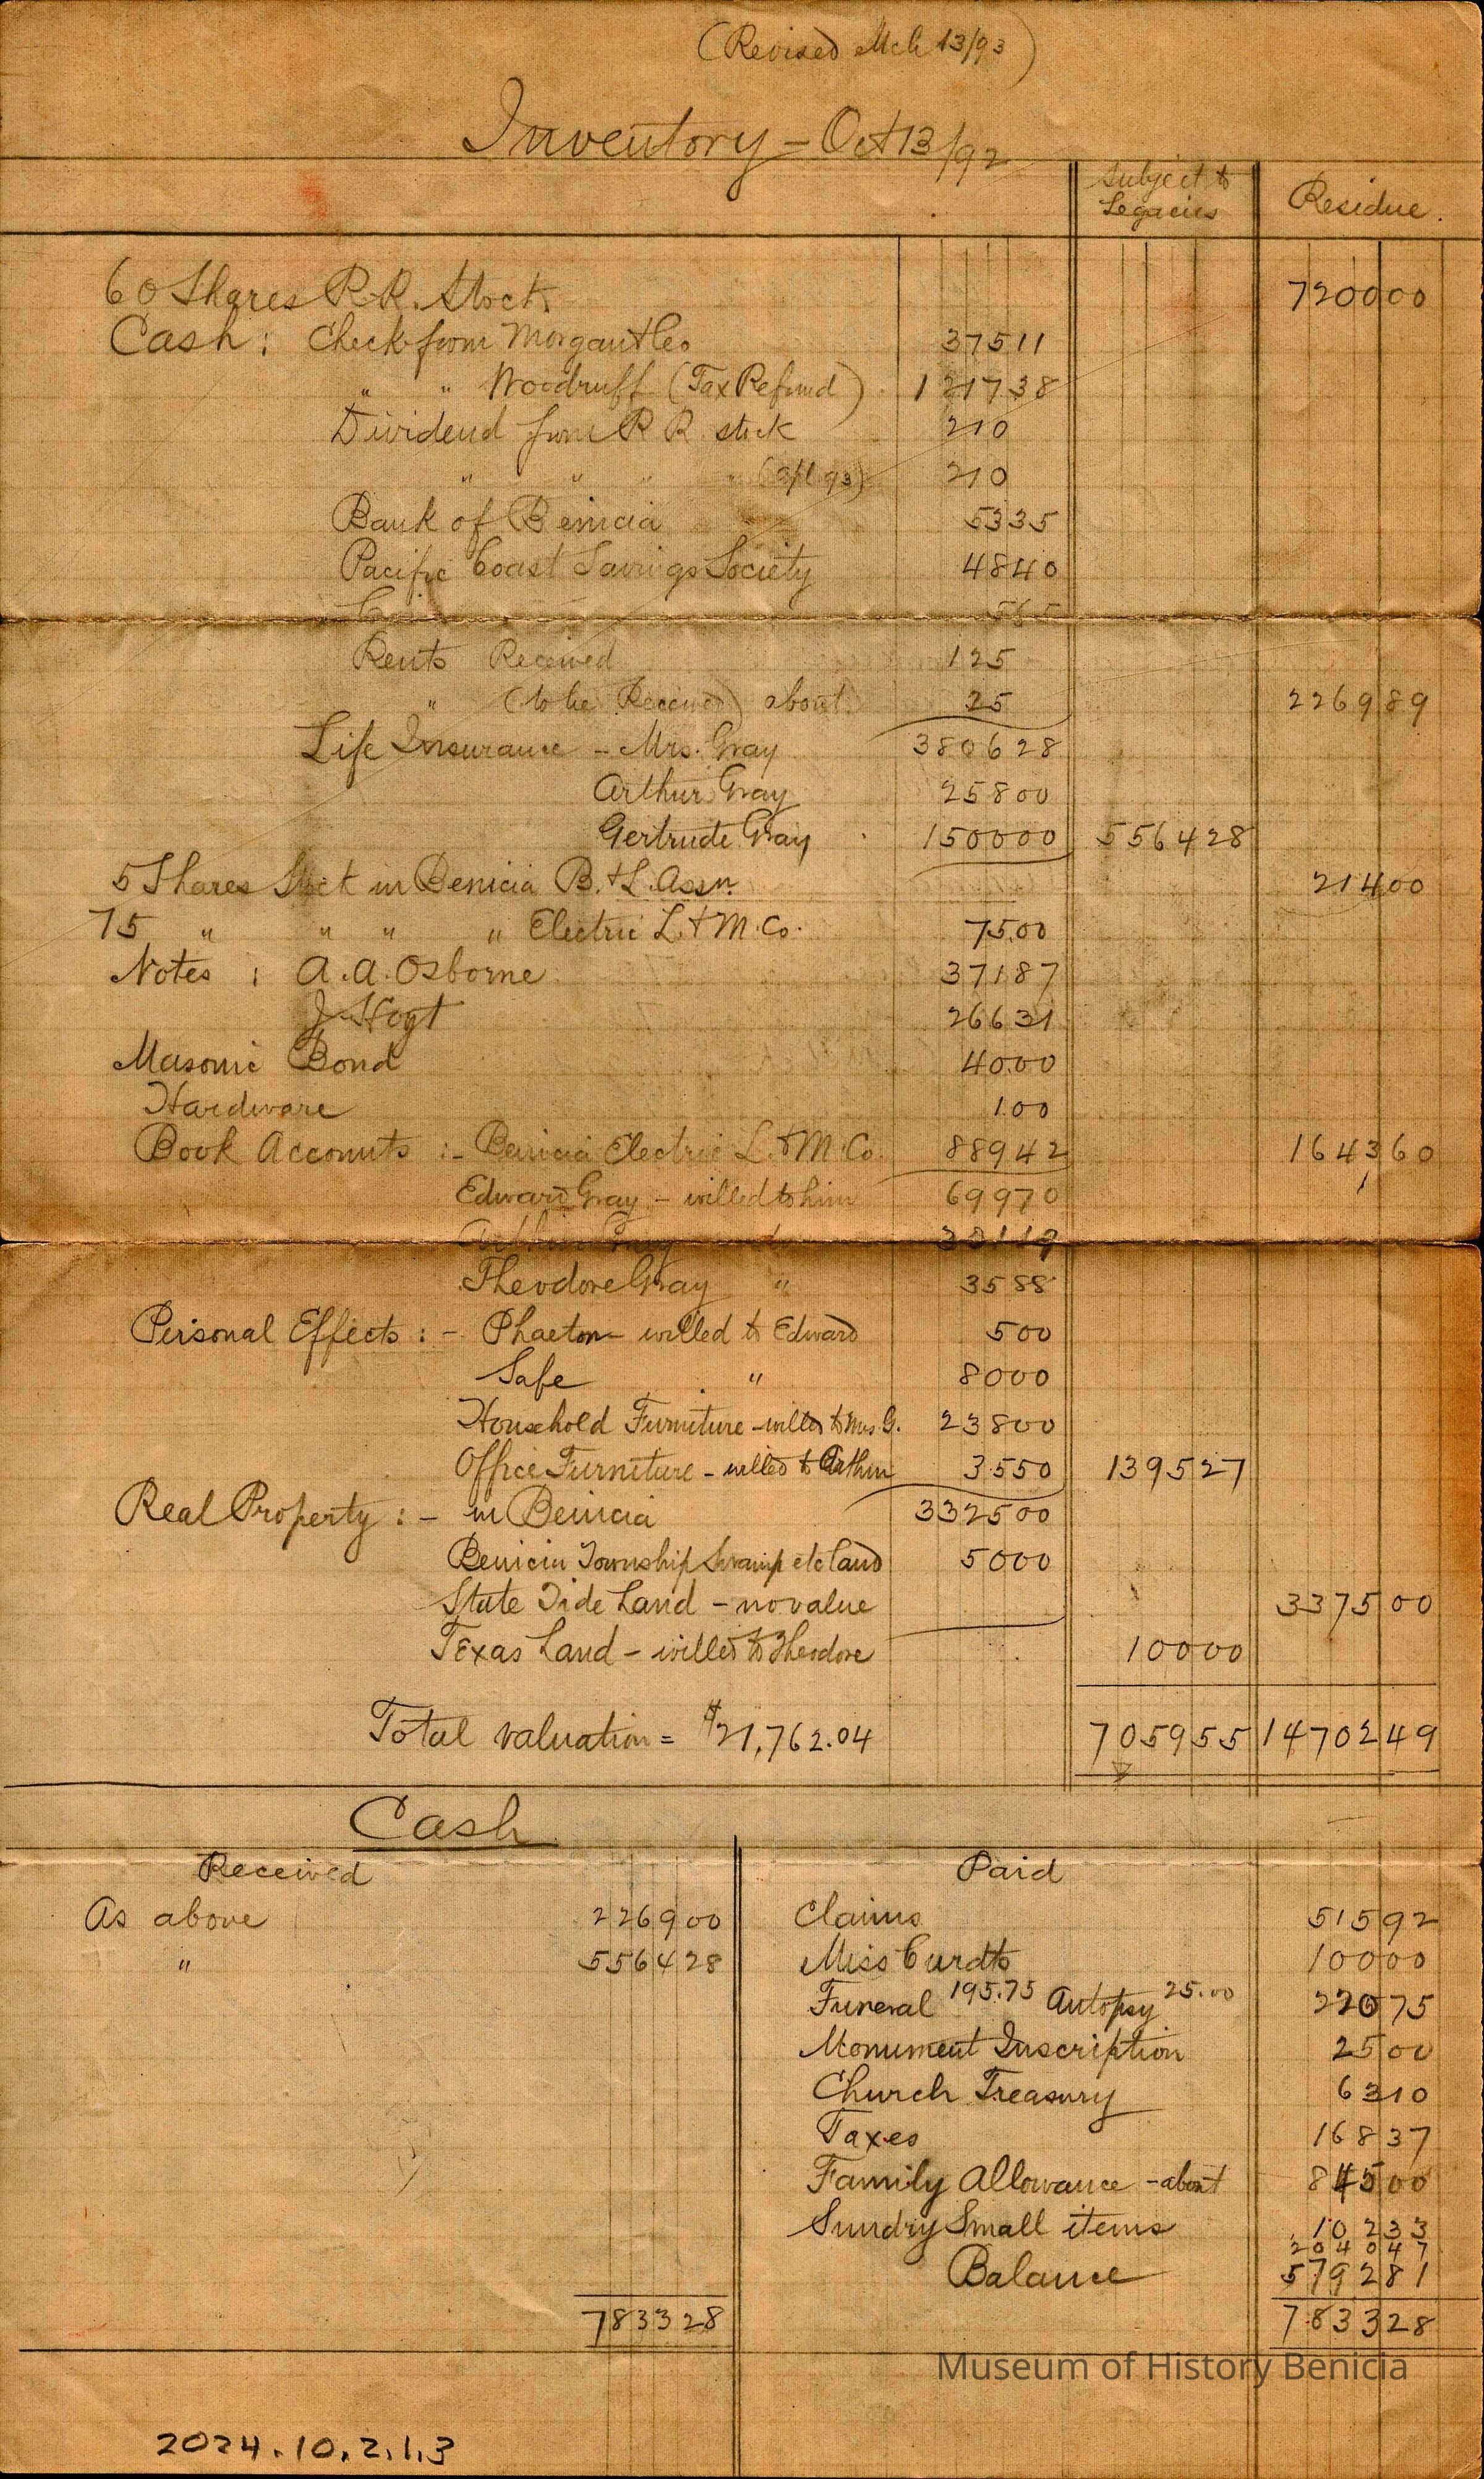 (Revised Mch 13/93)
Inventory - Oct 13/92
Subject to Legacies
Residue.
60 Shares R.R. Stock 720000
Cash: Check from Morgan & Co 37511
" " Woodruff (Tax Refund) 121738
Dividend from R R stock 210
" " " " 93) 210
Bank of Benicia 5335
Pacific Coast Savings Society 4840
565
Rents Received 125
" (to be Received) about 25 226989
Life Insurance - Mrs. Gray 380628
Arthur Gray 25800
Gertrude Gray 150000 556428
5 Shares Stock in Benicia B. & L. Assn. 21400
75 " " " " Electric L. & M. Co. 75.00
Notes : A. A. Osborne 37187
J. Hoyt 26631
Masonic Bond 40.00
Hardware 1.00
Book Accounts :- Benicia Electric L. & M. Co. 88942 164360
Edward Gray - willed to him 69970
Arthur Gray
Theodore Gray " 3588
Personal Effects : - Phaeton - willed to Edward 500
Safe " 8000
Household Furniture - willed to Mrs G. 23800
Office Furniture - willed to Arthur 3550 139527
Real Property : - in Benicia 332500
Benicia Township Swamp etc land 5000
State Tide Land - no value 337500
Texas Land - willed to Theodore 10000
Total valuation = $21,762.04 705955 1470249
Cash
Received Paid
As above 226900 Claims 51592
" 556428 Miss Curdts 10000
Funeral 195.75 Autopsy 25.00 22075
Monument Inscription 2500
Church Treasury 6310
Taxes 16837
Family Allowance - about 84500
Sundry Small items 10233
204047
Balance 579281
783328 783328
Museum of History Benicia
2024.10.2.1.3